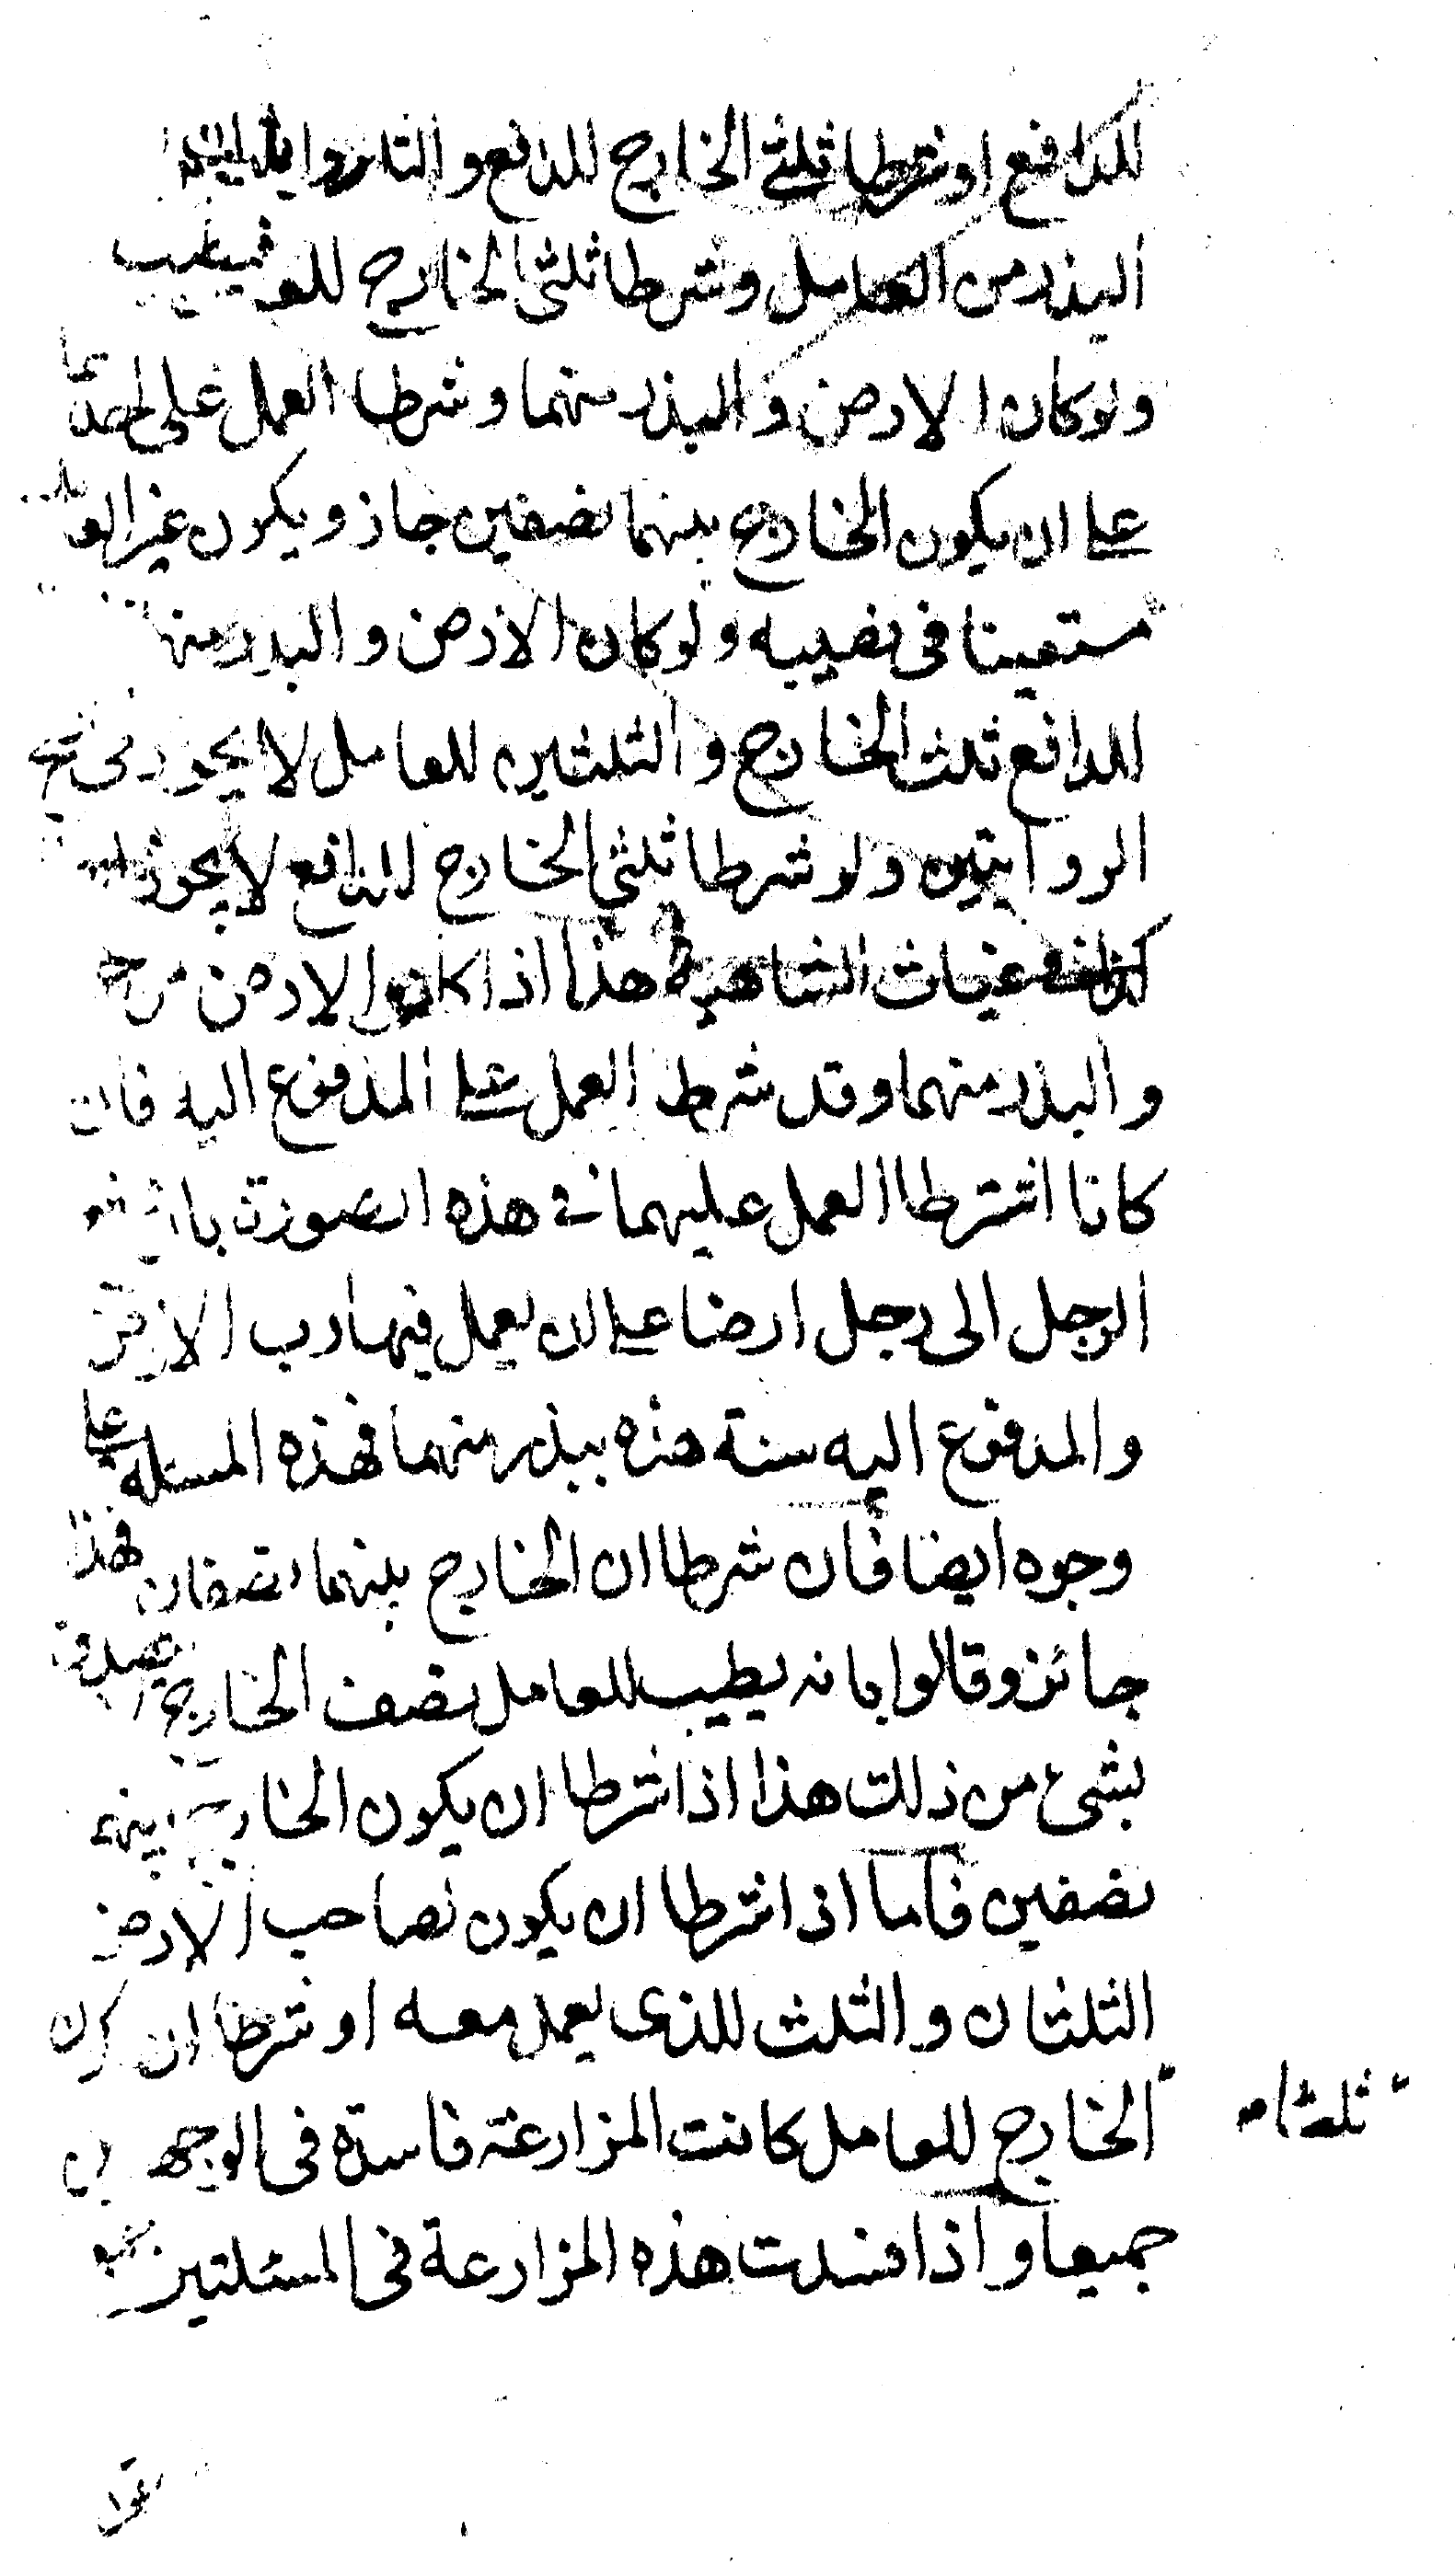 للدافع او شرطا ثلثي الخارج للدافع و
البذر من العامل وشرطا ثلثي الخارج
ولو كان الارض والبذر منهما وشرطا العمل على احدهما
على ان يكون الخارج بينهما نصفين جاز ويكون غير العامل
مستعينا في نصيبه ولو كان الارض والبذر منهما
للدافع ثلث الخارج والثلثين للعامل لا يجوز في
الروايتين ولو شرطا ثلثي الخارج للدافع لا يجوز
كذا في غياث هذا اذا كان الارض من
والبذر منهما وقد شرط العمل على المدفوع اليه فان
كانا اشترطا العمل عليهما في هذه الصورة
الرجل الى رجل ارضا على ان يعمل فيها رب الارض
والمدفوع اليه سنة هذه ببذر منهما فهذه المسئلة على
وجوه ايضا فان شرطا ان الخارج بينهما نصفان فهذا
جائز وقالوا بانه يطيب للعامل نصف الخارج
بشئ من ذلك هذا اذا شرطا ان يكون الخارج بينهما
نصفين فاما اذا شرطا ان يكون لصاحب الارض
الثلثان والثلث للذى يعمل معه او شرطا ان
ثلثا
الخارج للعامل كانت المزارعة فاسدة في الوجهين
جميعا واذا فسدت هذه المزارعة في المسئلتين